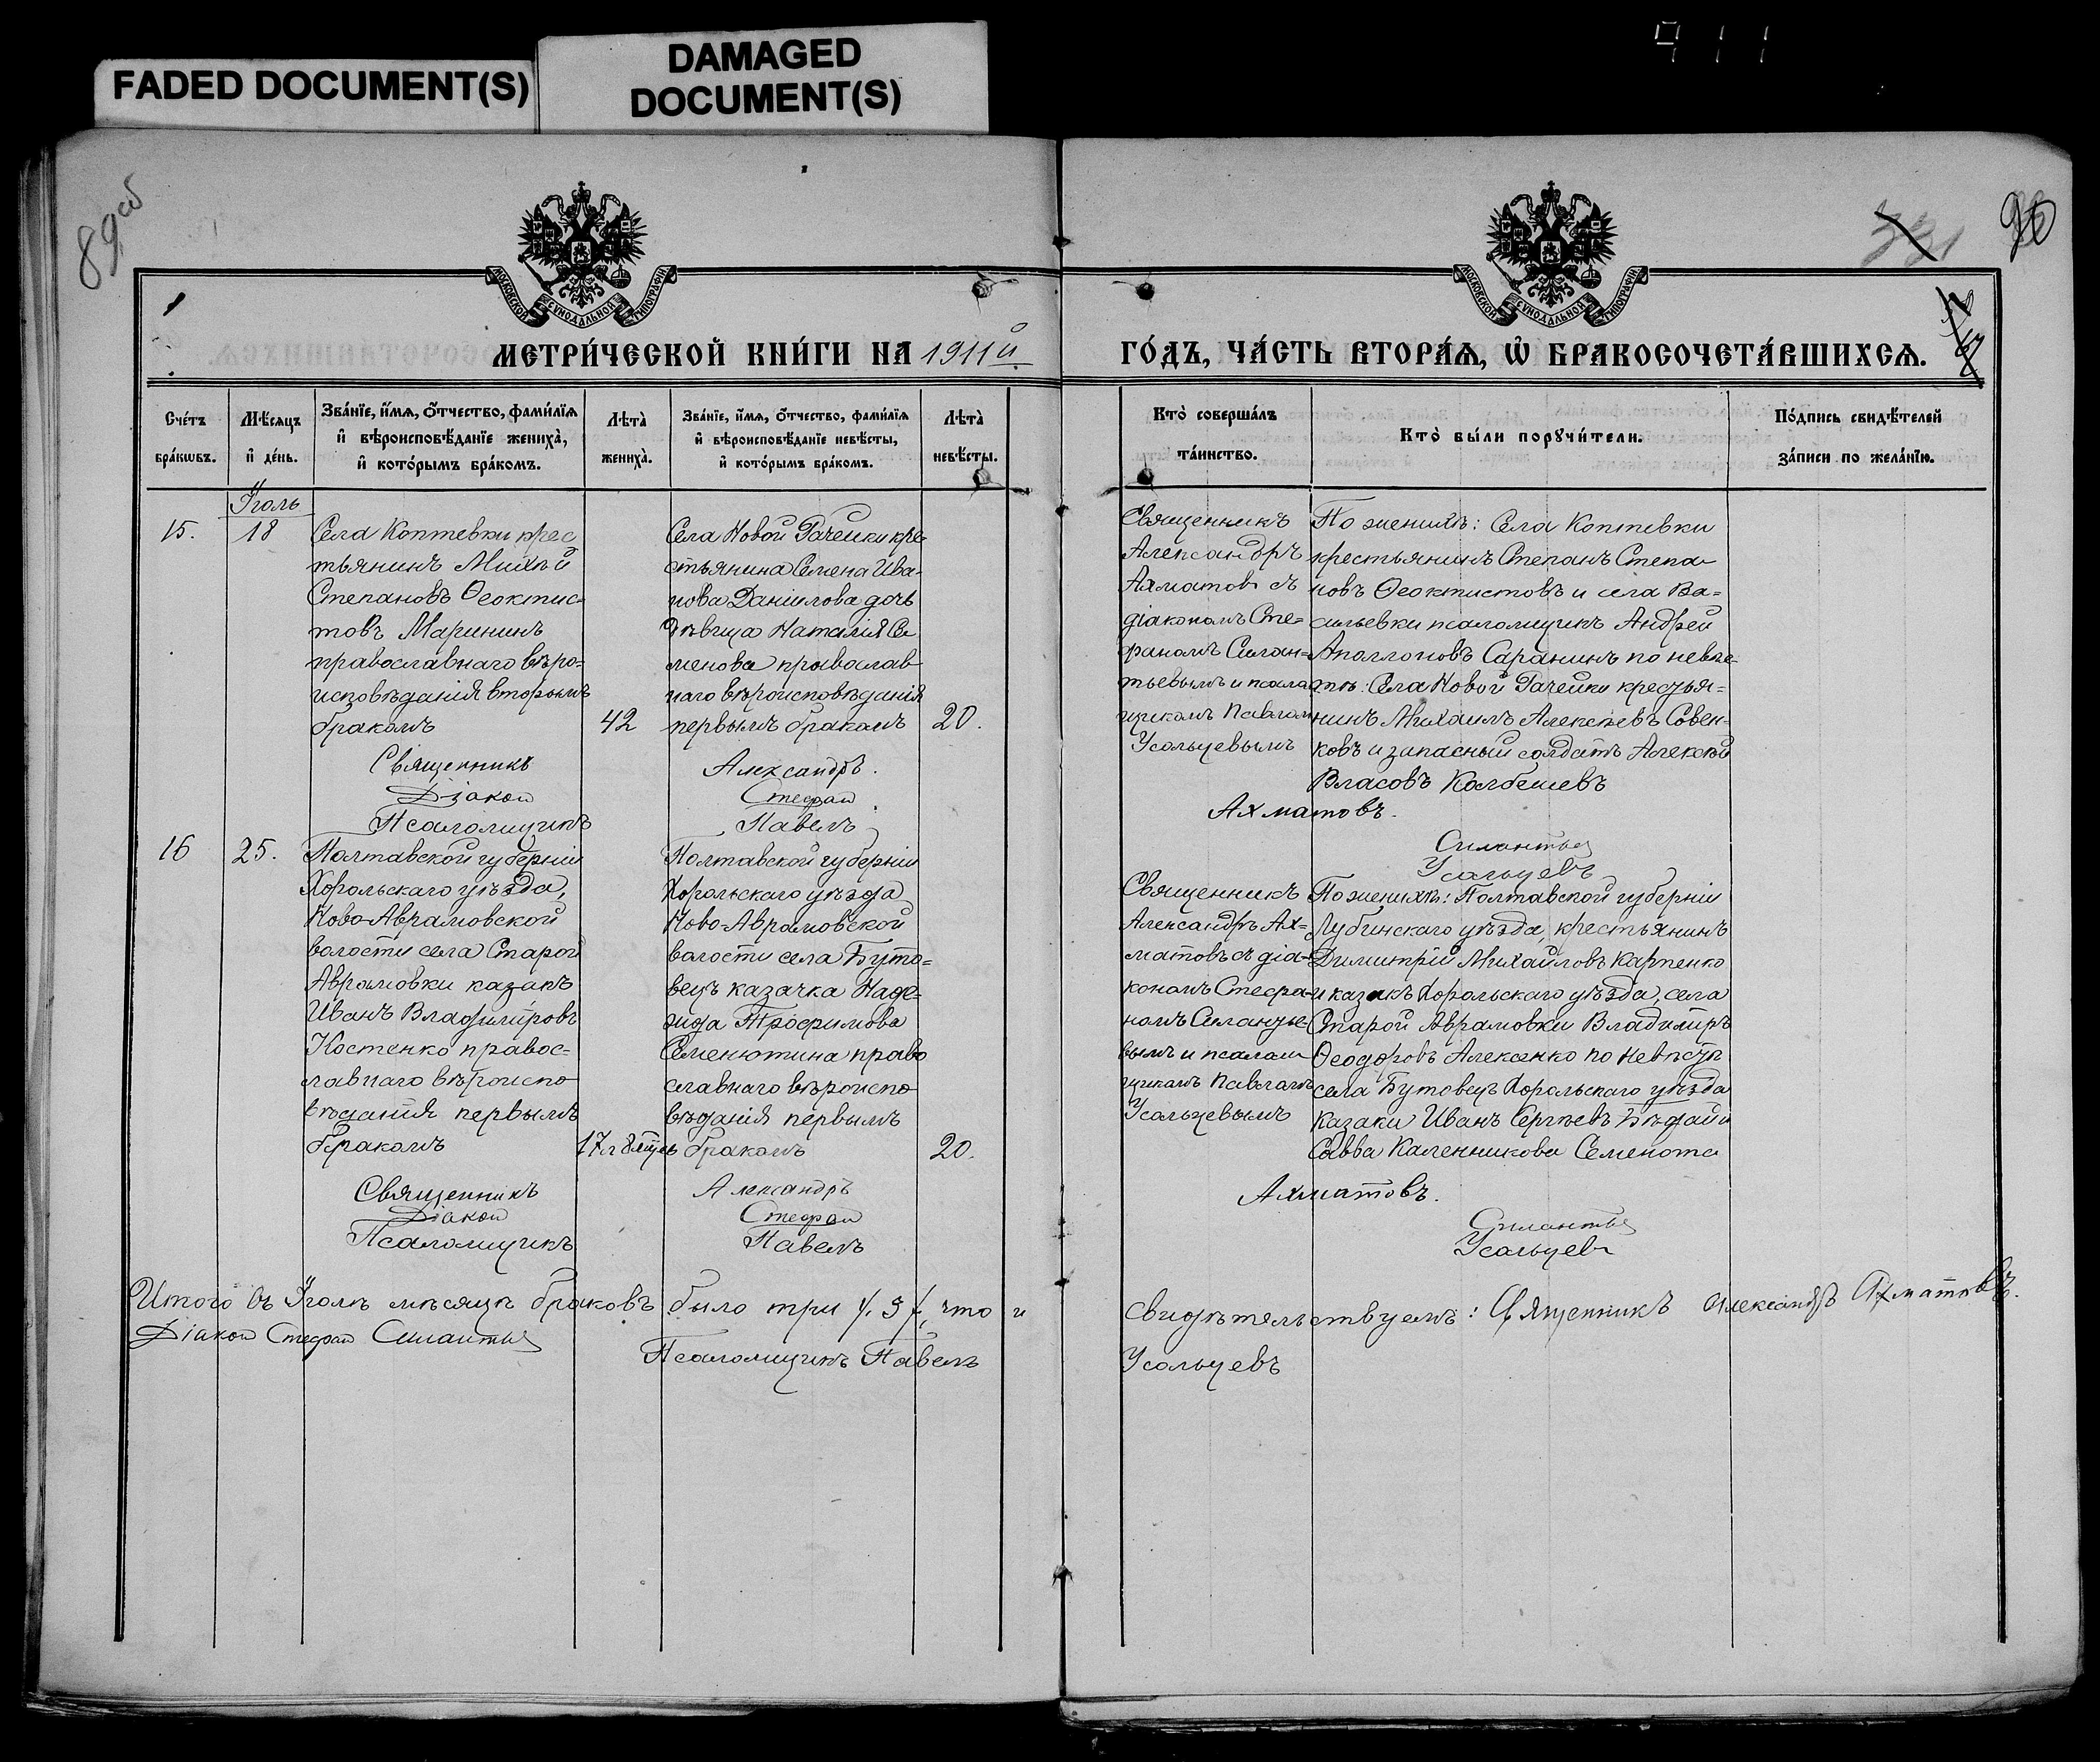 FADED DOCUMENT(S)
DAMAGED
DOCUMENT(S)
911
89 об
90
МОСКОВСКОЙ СѴНОДАЛЬНОЙ ТИПОГРАФІИ
МОСКОВСКОЙ СѴНОДАЛЬНОЙ ТИПОГРАФІИ
МЕТРИ́ЧЕСКОЙ КНИ́ГИ НА 1911й
ГО́ДЪ, ЧА́СТЬ ВТОРА́Ѧ, Ѡ҆ БРАКОСОЧЕТА́ВШИХСѦ.
Сче́тъ
бра́кѡвъ.
Мѣ́сѧцъ
и҆ де́нь.
Зва́нїе, и҆́мѧ, ѻ҆́тчество, фами́лїѧ
и҆ вѣроисповѣ́данїе жениха̀,
и҆ кото́рымъ бра́комъ.
Лѣта̀
жениха̀.
Зва́нїе, и҆́мѧ, ѻ҆́тчество, фами́лїѧ
и҆ вѣроисповѣ́данїе невѣ́сты,
и҆ кото́рымъ бра́комъ.
Лѣта̀
невѣ́сты.
Кто̀ соверша́лъ
та́инство.
Кто̀ бы́ли порꙋчи́тели.
По́дпись свидѣ́телей
за́писи по жела́нїю.
Іюль
15.
18
Села Коптевки крес
тьянинъ Михѣй
Степановъ Ѳеоктис=
товъ Марининъ
православнаго вѣро=
исповѣданія вторымъ
бракомъ
42
Села Новой Рачейки кре
стьянина Семена Ива-
нова Данилова дочь
дѣвица Наталія Се
менова православ
наго вѣроисповѣданія
первымъ бракомъ
20.
Священникъ
Александръ
Ахматовъ съ
діакономъ Сте=
фаномъ Силан=
тьевымъ и псалом
щикомъ Павломъ
Усольцевымъ
По женихѣ: Села Коптевки
крестьянинъ Степанъ Степа
новъ Ѳеоктистовъ и села Ва=
сильевки псаломщикъ Андрей
Аполлоновъ Саранинъ по невѣ-
стѣ: Села Новой Рачейки крестья=
нинъ Михаилъ Алексѣевъ Совен=
ковъ и запасный солдатъ Алексѣй
Власовъ Колбешевъ
Священникъ Александръ Ахматовъ.
Діакон Стефан Силантьев
Псаломщикъ Павелъ Усольцевъ
16
25.
Полтавской губерніи
Хорольскаго уѣзда,
Ново-Аврамовской
волости села Старой
Аврамовки казакъ
Иванъ Владиміровъ
Костенко правос=
лавнаго вѣроиспо
вѣданія первымъ
бракомъ
17 л 8 мѣсь
Полтавской губерніи
Хорольскаго уѣзда
Ново-Аврамовской
волости села Буто=
вецъ казачка Наде=
жда Трофимова
Семенютина право
славнаго вѣроиспо
вѣданія первымъ
бракомъ
20.
Священникъ
Александръ Ах=
матовъ съ діа-
кономъ Стефа-
номъ Силантье-
вымъ и псалом
щикомъ Павломъ
Усольцевымъ
По женихѣ: Полтавской губерніи
Лубинскаго уѣзда, крестьянинъ
Димитрій Михайловъ Карпенко
и казакъ Хорольскаго уѣзда, села
Старой Аврамовки Владиміръ
Ѳеодоровъ Алексенко по невѣстѣ
села Бутовецъ Хорольскаго уѣзда
казаки Иванъ Сергѣевъ
Савва Каленникова Семенота
Священникъ Александръ Ахматовъ.
Діакон Стефан Силантьев
Псаломщикъ Павелъ Усольцевъ
Итого въ Іюлѣ мѣсяцѣ браковъ было три /. 3 /, что и свидѣтельствуемъ: Священникъ Александръ Ахматовъ.
Діакон Стефан Силантьев Псаломщикъ Павелъ Усольцевъ